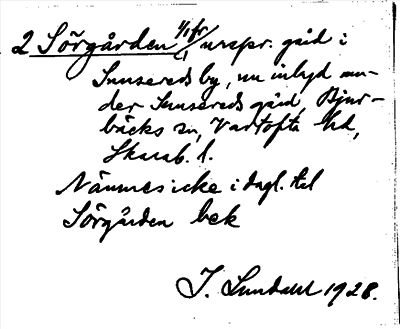 2 Sörgården 1/1 fr urspr. gård i
Sunsereds by, nu inlyd un-
der Sunsereds gård, Bjur-
bäcks sn, Vartofta hd,
Skarab. l.
Nämnes icke i dagl. tal
Sörgården bek
J. Sundahl 1928.